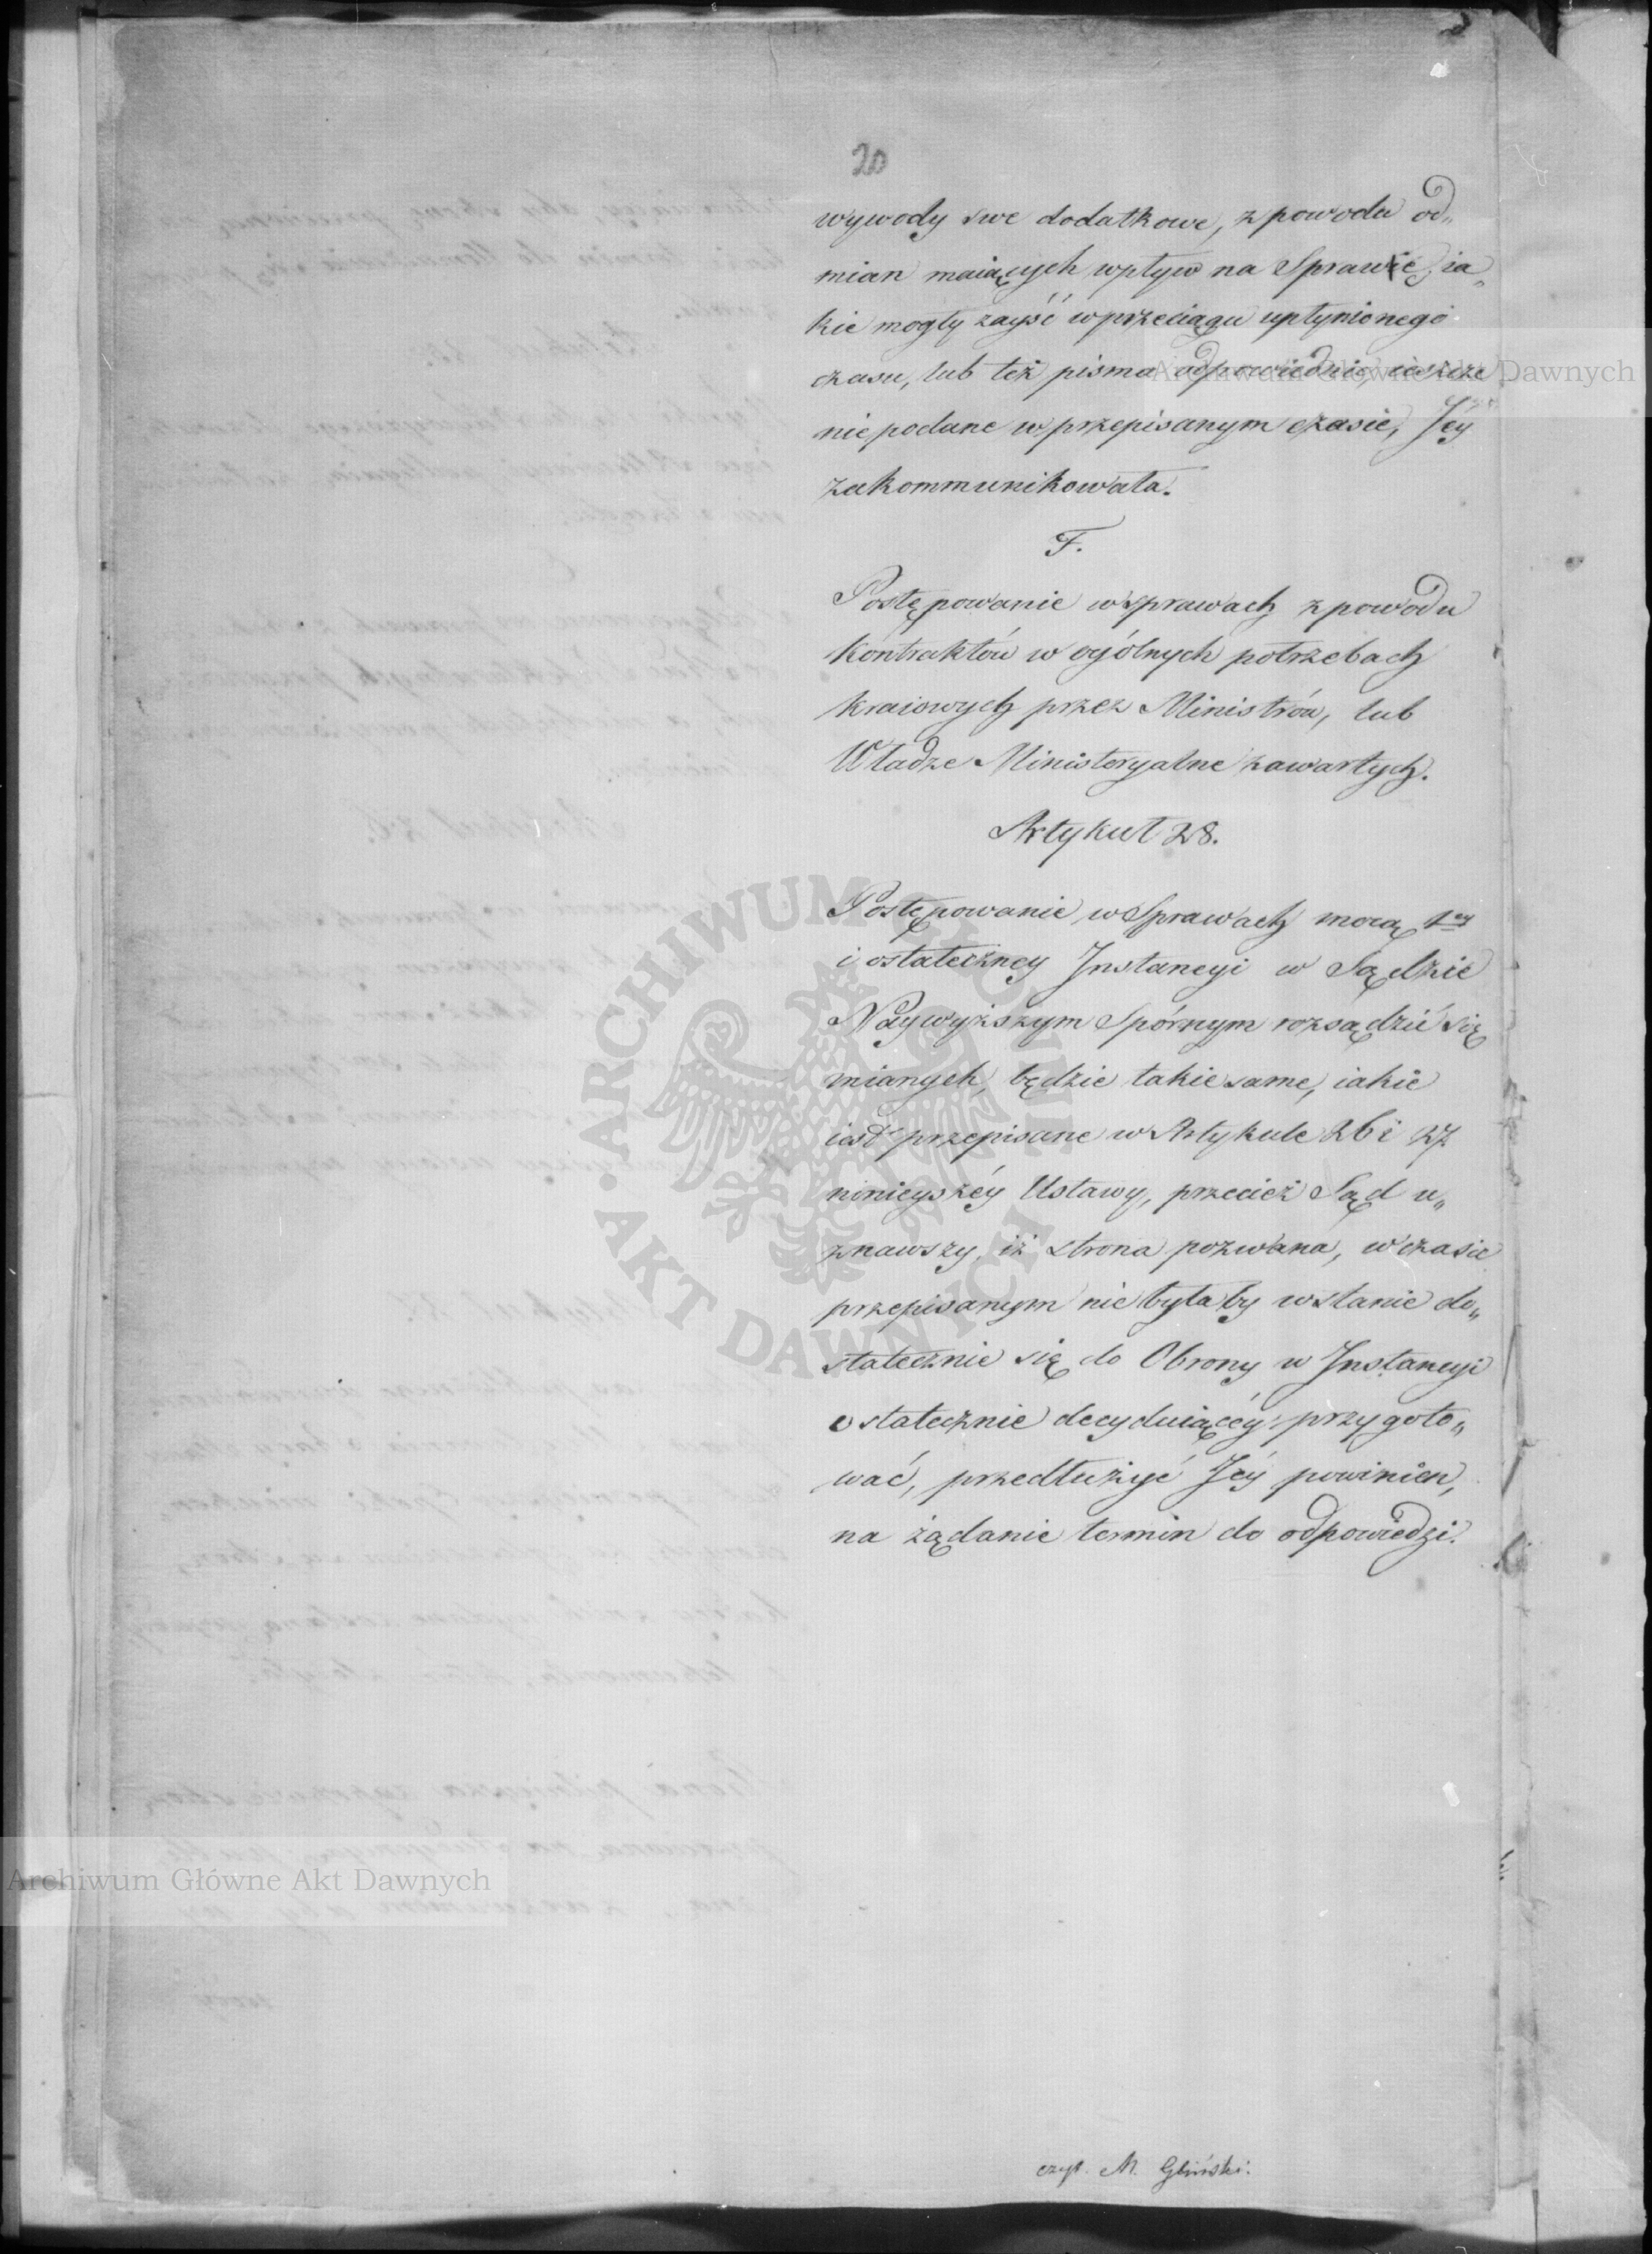 20
wywody swe dodatkowe, z powodu od„
mian maiących wpływ na Sprawie, ia„
kie mogły zayść w przeciągu upłynionego
czasu, lub też pisma odpowiednie, ieszcze
nie podane w przepisanym czasie, Jéy
zakommunikowała.
F.
Postępowanie w sprawach z powodu
Kontraktów w ogólnych potrzebach
kraiowych przez Ministrów, lub
Władze Ministeryalne zawartych.
Artykuł 28.
Postępowanie w Sprawach mocą 1ey
i ostateczney Instancyi w Sądzie
Naywyższym Spórnym rozsądzić się
mianych, będzie takie same, iakie
iest przepisane w Artykule 26 i 27
ninieyszéy Ustawy, przecież Sąd u„
znawszy, iż strona pozwana, w czasie
przepisanym nie byłaby w stanie do„
statecznie się do Obrony w Instancyi
ostatecznie decyduiącéy przygoto„
wać, przedłużyć Jéy powinien,
na żądanie termin do odpowiedzi.
czyt. M. Gliński.
Archiwum Główne Akt Dawnych
Archiwum Główne Akt Dawnych
ARCHIWUM GŁÓWNE · AKT DAWNYCH